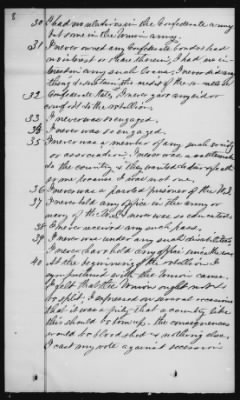 8
30 I had no relations in the Confederate army
but some in the Union army.
31 I never owned any Confederate bonds had
no interest or share therein, I had no in-
terest in any such loans. I never did any
thing to sustain the credit of the so-called
Confederate States,
32 I never gave any aid or
comfort to the rebellion.
33 I never was so engaged.
34 I never was so engaged.
35 I never was a member of any such society
or association. I never was a
to the country
for me, because I was not one,
36 I never was a paroled prisoner of the U.S.
37 I never held any office in the army or
navy of the U.S. I never was so educated
38 I never received any such pass.
39 I never was under any such disabilities
I never have held any office since the war
40 At the beginning of the rebellion I
sympathized with the Union cause.
I felt that the Union ought not to
be split. I expressed on several occasions
that it was a pity that a country like
this should be torn up. the consequences
would be bloodshed & nothing else.
I cast my vote against secession